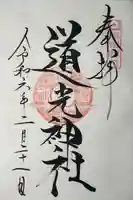 奉拝
道光神社
令和六年二月二十一日